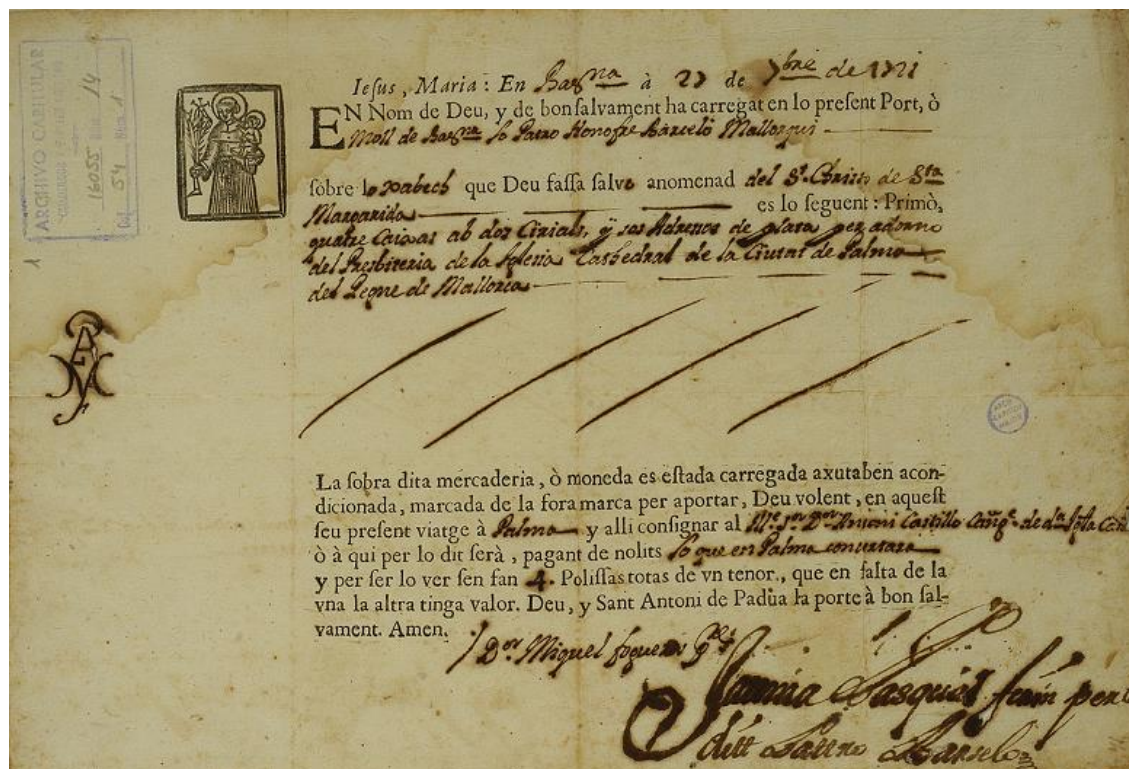 ARCHIVO CAPITULAR
16055 14
54 1
Iesus, Maria: En Barᵑᵃ à 27 de 7bre de 1721
EN Nom de Deu, y de bonsalvament ha carregat en lo present Port, ò
Moll de Barᵑᵃ lo Patro Honofre Barcelò Mallorqui
sobre lo xabech que Deu fassa salvo anomenad del St. Christo de Sta
Margarida es lo seguent: Primò,
quatre Caixas ab dos Cirials, y sos Adresos de plata per adorno
del Presbiteria de la Iglesia Cathedral de la Ciutat de Palma
del Regne de Mallorca
La sobra dita mercaderia, ò moneda es estada carregada axutaben acon-
dicionada, marcada de la fora marca per aportar, Deu volent, en aquest
seu present viatge à Palma y alli consignar al Mᵉ. Sᵒʳ Dᵒʳ Antoni Castillo Cañᵍᵉ. de dᵗᵃ Sᵗᵃ
ò à qui per lo dit serà, pagant de nolits lo que en Palma
y per ser lo ver sen fan 4. Polissas totas de vn tenor., que en falta de la
vna la altra tinga valor. Deu, y Sant Antoni de Padùa la porte à bon sal-
vament. Amen.
Dᵒʳ Miquel
Jauma Pasqual per
ditt Patro Barselo